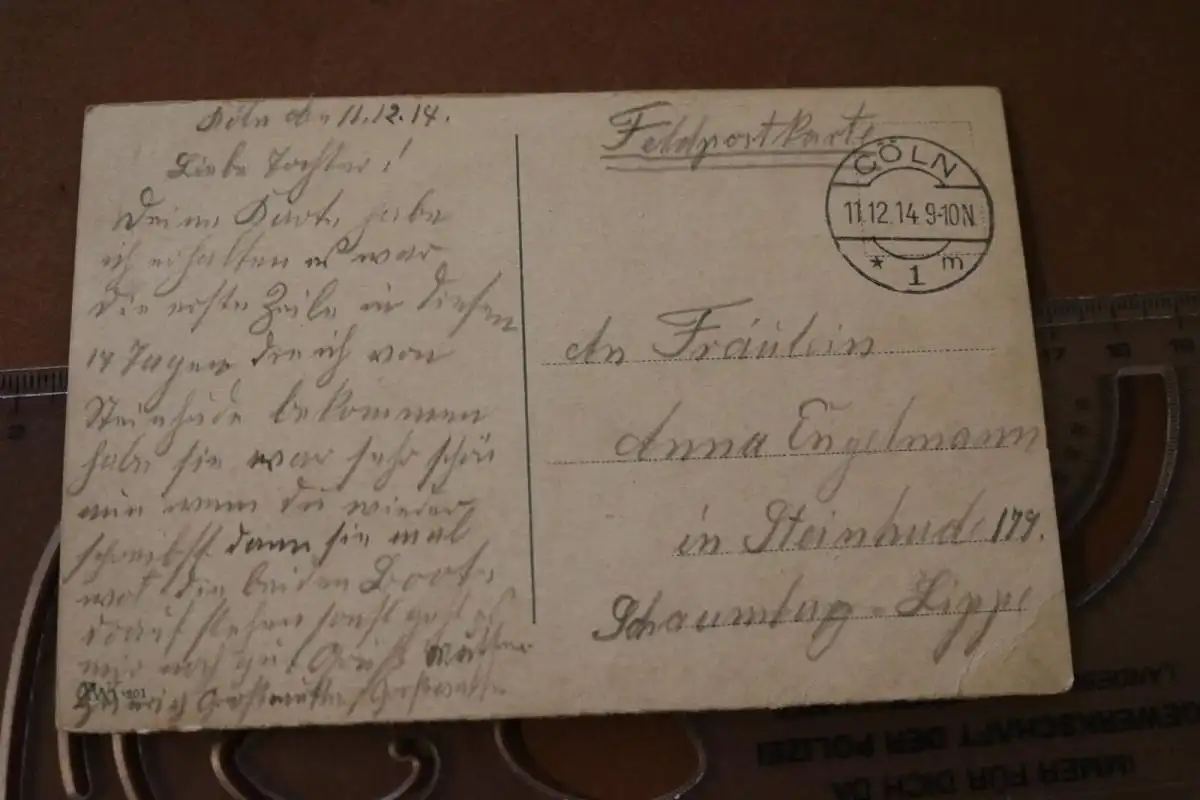 Köln den 11.12.14.
Liebe Tochter!
Deine Karte habe
ich erhalten es war
die erste Zeile in diesen
14 Tagen die ich von
Steinhude bekommen
habe sie war sehr schön
nun wenn du wieder
schreibst dann sie mal
die beiden Boote
drauf stehen sonst geht es
mir noch gut Gruß Mutter
Heinrich Großmutter Großvater
Feldpostkarte
CÖLN
11.12.14.9-10N
* 1 m
An Fräulein
Anna Engelmann
in Steinhude 179.
Schaumburg-Lippe
17 18 19
LANDES
GEWERKSCHAFT DER POLIZEI
IMMER FÜR DICH DA